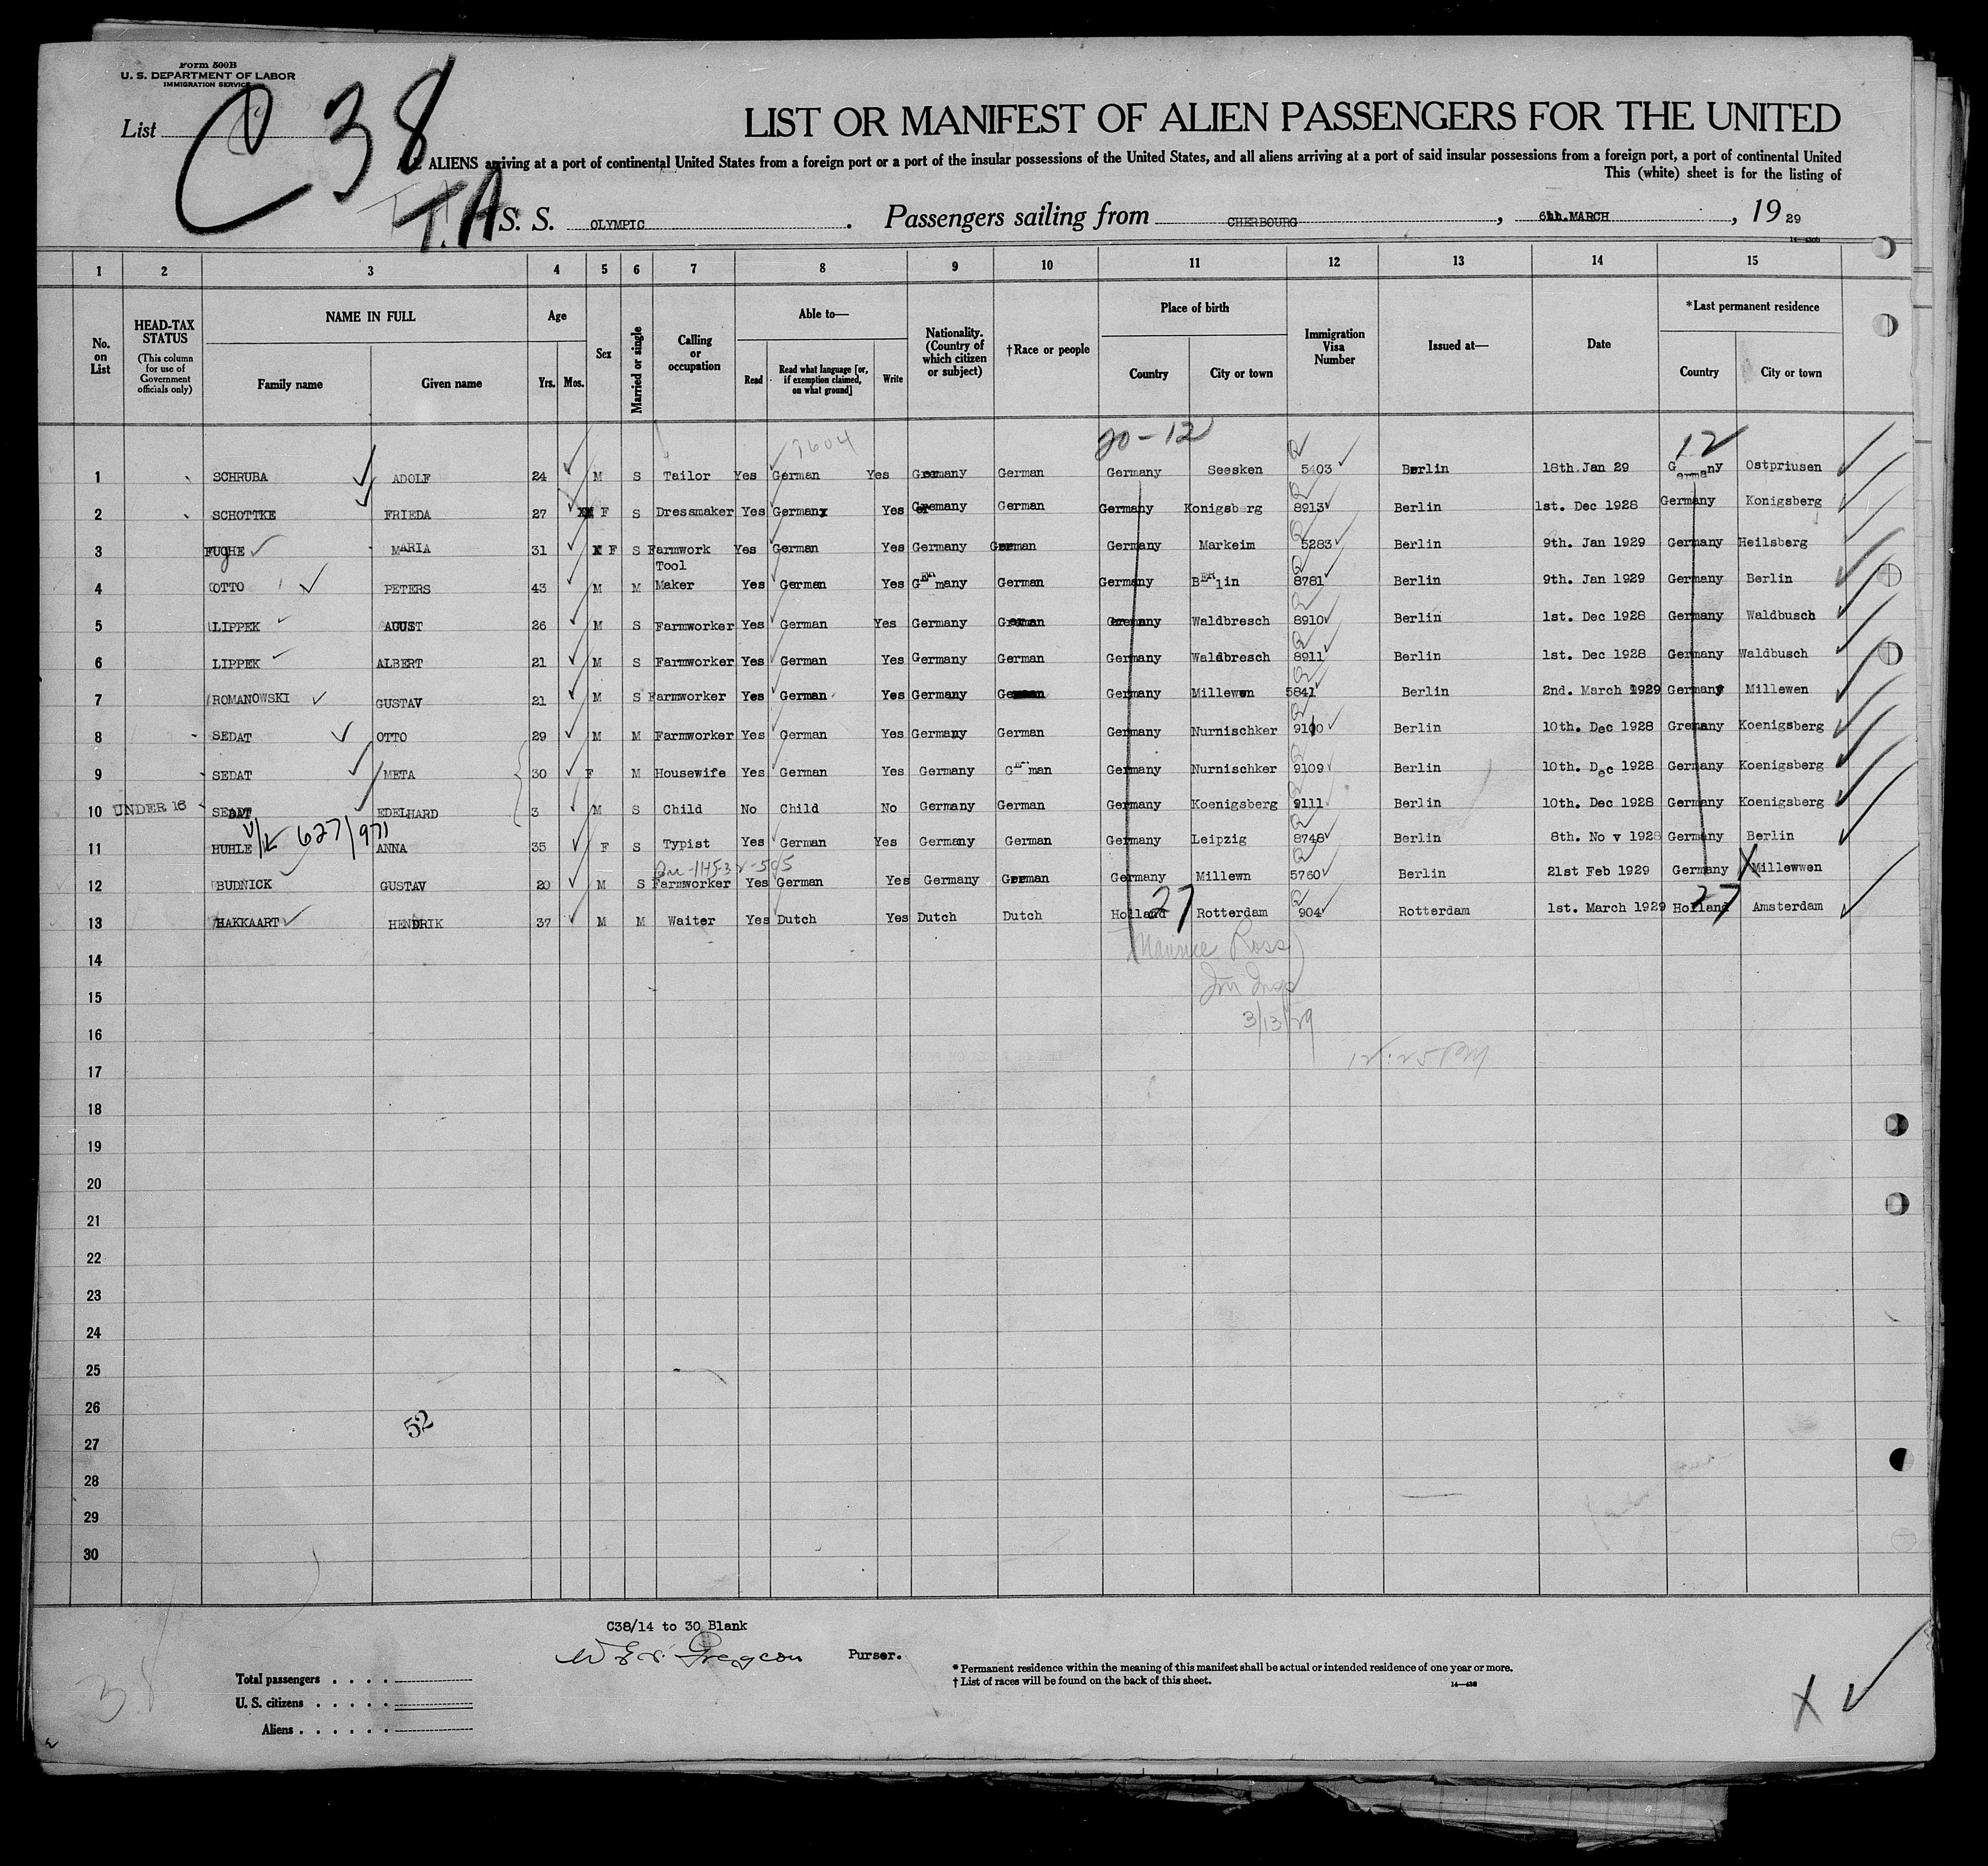 Form 500B
U. S. DEPARTMENT OF LABOR
IMMIGRATION SERVICE
List
C 38
T.A
LIST OR MANIFEST OF ALIEN PASSENGERS FOR THE UNITED
ALIENS arriving at a port of continental United States from a foreign port or a port of the insular possessions of the United States, and all aliens arriving at a port of said insular possessions from a foreign port, a port of continental United
This (white) sheet is for the listing of
S. S. OLYMPIC. Passengers sailing from CHERBOURG, 6th.MARCH, 19 29
1 2 3 4 5 6 7 8 9 10 11 12 13 14 15
No. on List
HEAD-TAX STATUS (This column for use of Government officials only)
NAME IN FULL Family name Given name
Age Yrs. Mos.
Sex
Married or single
Calling or occupation
Able to— Read Read what language [or, if exemption claimed, on what ground] Write
Nationality. (Country of which citizen or subject)
†Race or people
Place of birth Country City or town
Immigration Visa Number
Issued at—
Date
*Last permanent residence Country City or town
9604 20-12 12
1 SCHRUBA ADOLF 24 M S Tailor Yes German Yes Germany German Germany Seesken 5403 Berlin 18th.Jan 29 Germany Ostpriusen
2 SCHOTTKE FRIEDA 27 F S Dressmaker Yes German Yes Germany German Germany Konigsberg 8913 Berlin 1st. Dec 1928 Germany Konigsberg
3 FUGHE MARIA 31 F S Farmwork Yes German Yes Germany German Germany Markeim 5283 Berlin 9th. Jan 1929 Germany Heilsberg
4 OTTO PETERS 43 M M Tool Maker Yes German Yes Germany German Germany Berlin 8781 Berlin 9th. Jan 1929 Germany Berlin
5 LIPPEK AUGUST 26 M S Farmworker Yes German Yes Germany German Germany Waldbresch 8910 Berlin 1st. Dec 1928 Germany Waldbusch
6 LIPPEK ALBERT 21 M S Farmworker Yes German Yes Germany German Germany Waldbresch 8911 Berlin 1st. Dec 1928 Germany Waldbusch
7 ROMANOWSKI GUSTAV 21 M S Farmworker Yes German Yes Germany German Germany Millewen 5841 Berlin 2nd. March 1929 Germany Millewen
8 SEDAT OTTO 29 M M Farmworker Yes German Yes Germany German Germany Nurnischker 9100 Berlin 10th. Dec 1928 Gremany Koenigsberg
9 SEDAT META 30 F M Housewife Yes German Yes Germany German Germany Nurnischker 9109 Berlin 10th. Dec 1928 Germany Koenigsberg
10 UNDER 16 SEDAT EDELHARD 3 M S Child No Child No Germany German Germany Koenigsberg 9111 Berlin 10th. Dec 1928 Germany Koenigsberg
627/971
11 HUHLE ANNA 35 F S Typist Yes German Yes Germany German Germany Leipzig 8748 Berlin 8th. No v 1928 Germany Berlin
12 BUDNICK GUSTAV 20 M S Farmworker Yes German Yes Germany German Germany Millewn 5760 Berlin 21st Feb 1929 Germany X Millewwen
27 27
13 HAKKAART HENDRIK 37 M M Waiter Yes Dutch Yes Dutch Dutch Holland Rotterdam 904 Rotterdam 1st. March 1929 Holland Amsterdam
14
Maurice Ross
15
Im Insp
16
3/13/29
12:25 PM
17
18
19
20
21
22
23
24
25
26
52
27
28
29
30
C38/14 to 30 Blank
Purser.
Total passengers
U. S. citizens
Aliens
* Permanent residence within the meaning of this manifest shall be actual or intended residence of one year or more.
† List of races will be found on the back of this sheet.
38
X